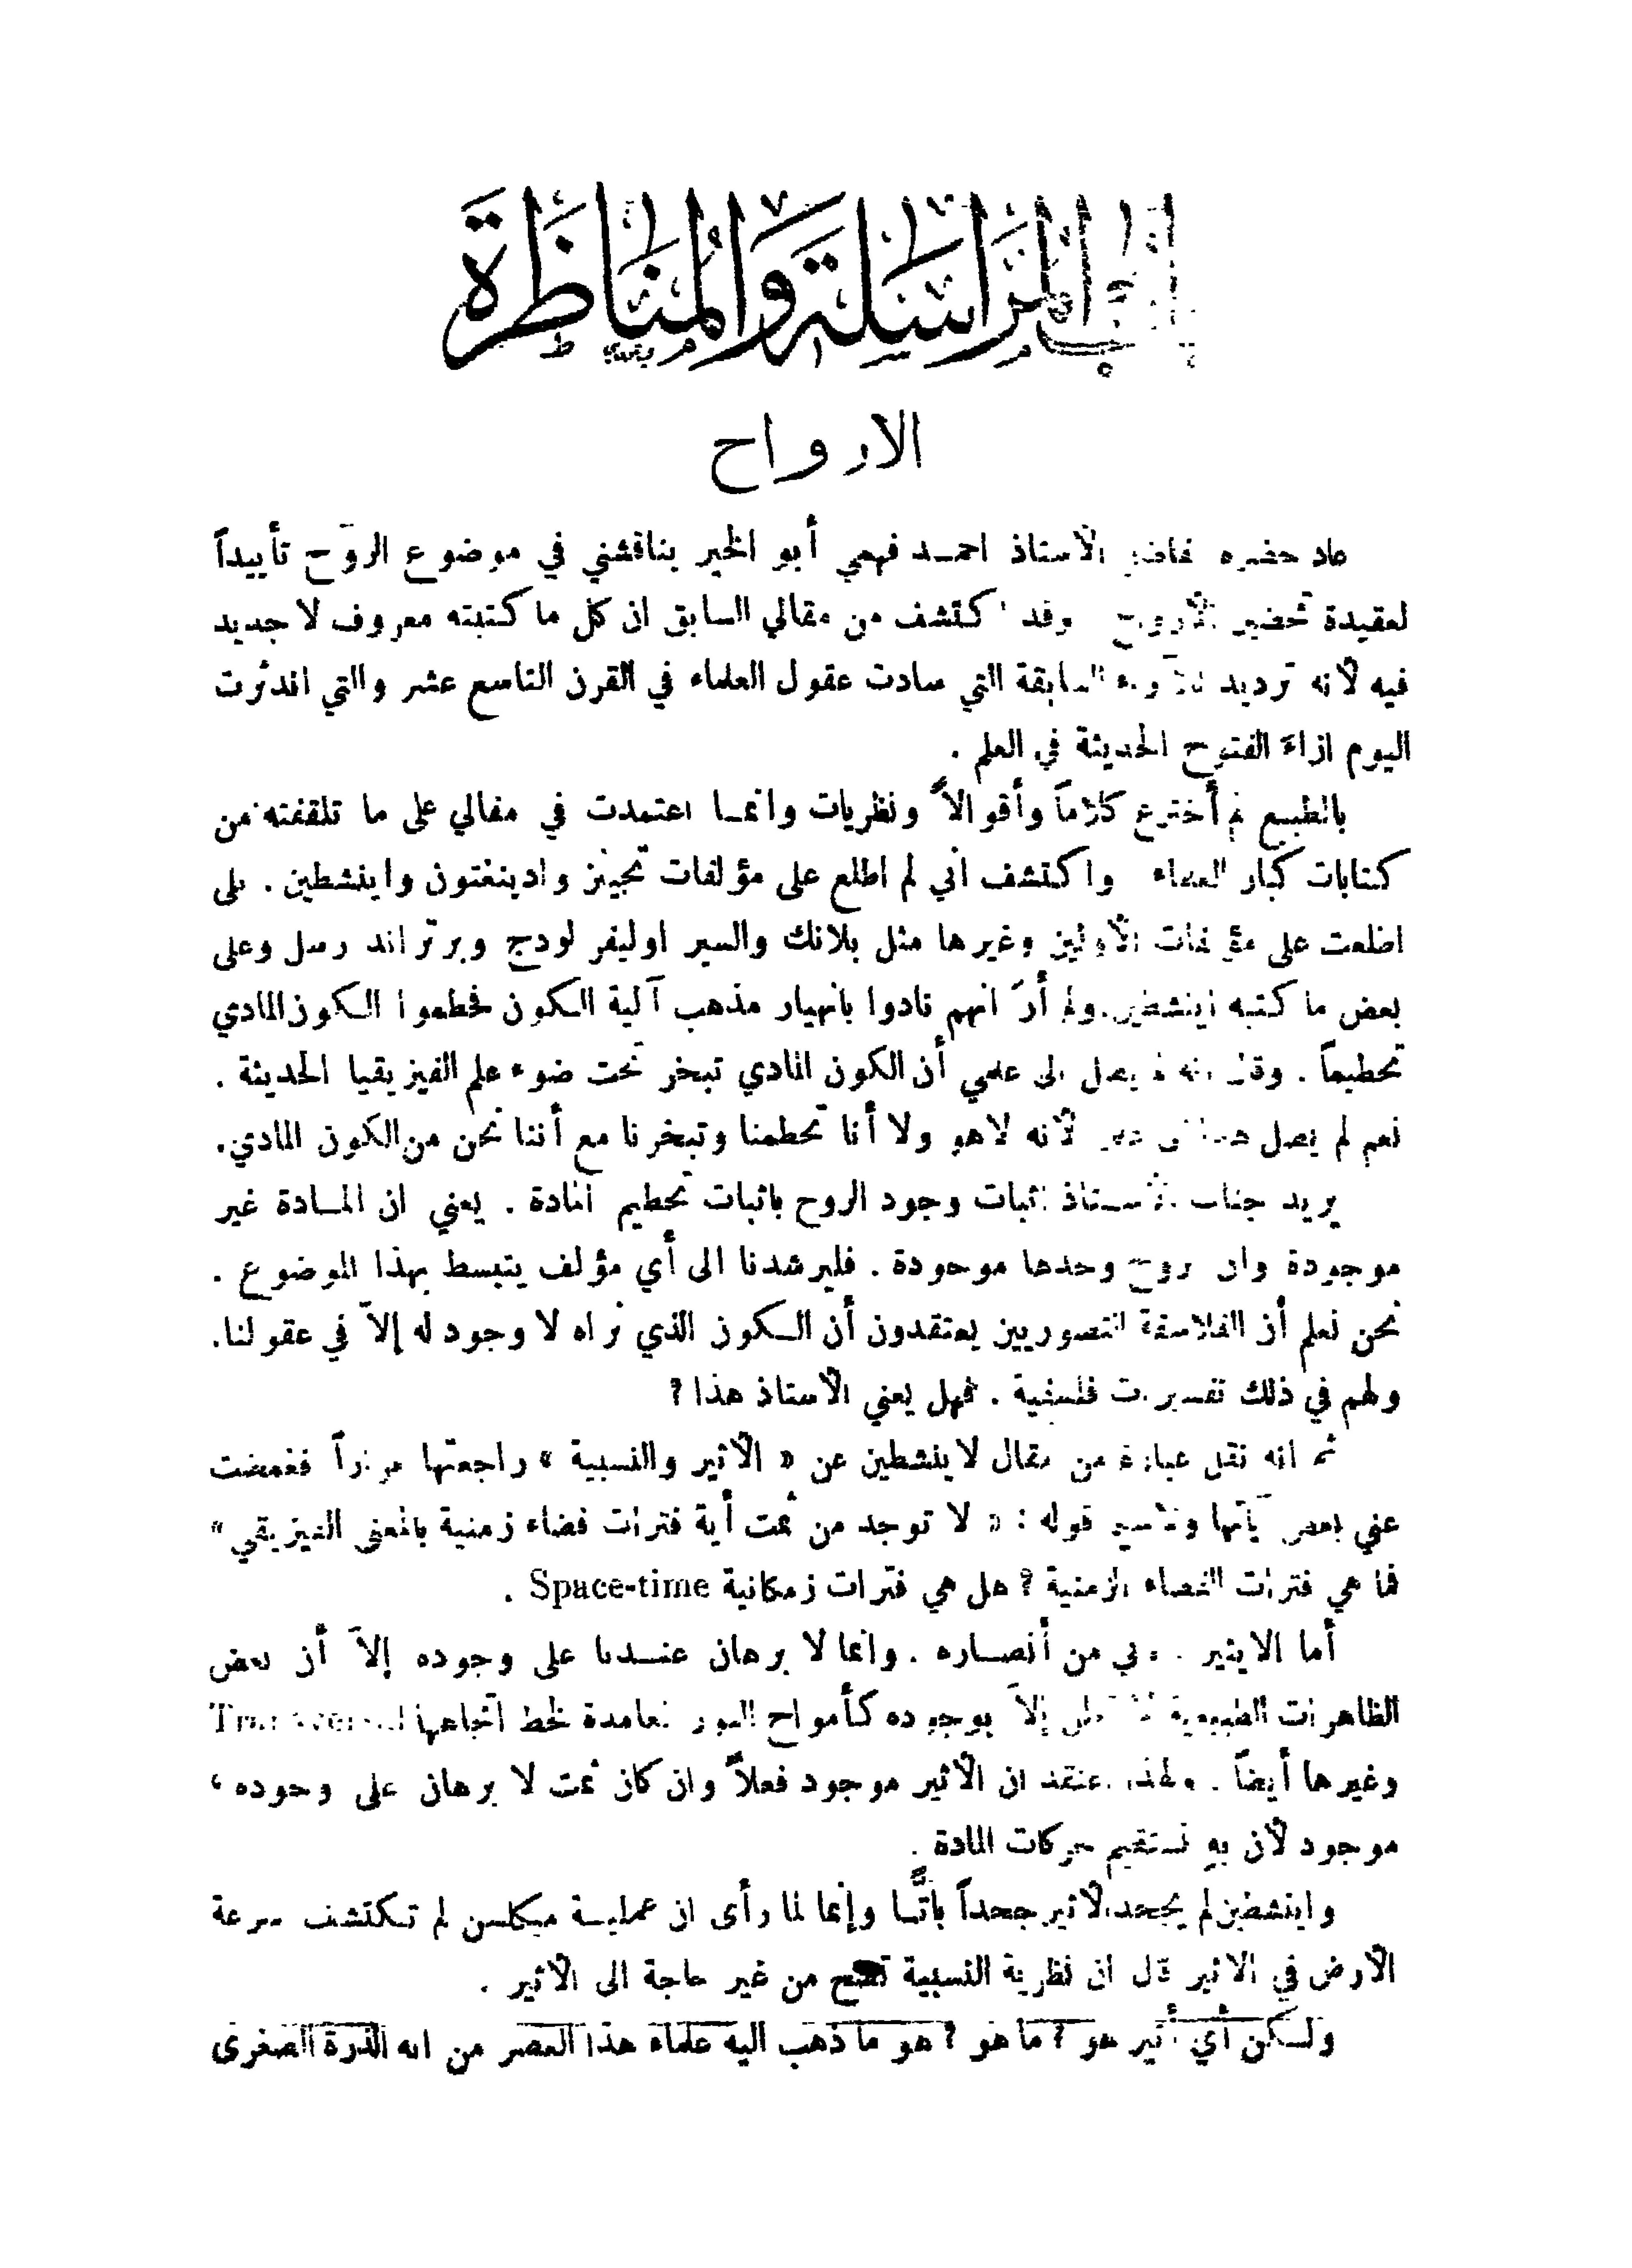 باب المراسلة والمناظرة
الارواح
عاد حضرة الأستاذ احمد فهمي أبو الخير يناقشني في موضوع الروح تأييداً
لعقيدة تحضير الأرواح وقد اكتشف من مقالي السابق ان كل ما كتبته معروف لا جديد
فيه لأنه ترديد السابقة التي سادت عقول العلماء في القرن التاسع عشر والتي اندثرت
اليوم ازاء الفتوح الحديثة في العلم .
بالطبع لم أخترع كلاماً وأقوالاً ونظريات وانما اعتمدت في مقالي على ما تلقفته من
كتابات كبار العلماء واكتشف اني لم اطلع على مؤلفات تجينز وادينغتون واينشطين . بلى
اطلعت على مؤلفات الأولين وغيرها مثل بلانك والسير اوليفر لودج وبرتراند رسل وعلى
بعض ما كتبه اينشطين . ولم أرَ انهم نادوا بانهيار مذهب آلية الكون فحطموا الكون المادي
تحطيماً . وقال انه لم يصل الى علمي أن الكون المادي تبخر تحت ضوء علم الفيزيقيا الحديثة .
نعم لم يصل لأنه لا هو ولا أنا تحطمنا وتبخرنا مع أننا نحن من الكون المادي .
يريد جناب الأستاذ اثبات وجود الروح باثبات تحطيم المادة . يعني ان المادة غير
موجودة وان الروح وحدها موجودة . فليرشدنا الى أي مؤلف يتبسط بهذا الموضوع .
نحن نعلم أن الفلاسفة التصوريين يعتقدون أن الكون الذي نراه لا وجود له إلاّ في عقولنا .
ولهم في ذلك تفسيرات فلسفية . فهل يعني الأستاذ هذا ?
ثم انه نقل عبارة من مقال لاينشطين عن « الأثير والنسبية » راجعتها مراراً فغمضت
عني بعض قوله : « لا توجد من ثمت أية فترات فضاء زمنية بالمعنى الفيزيقي »
فما هي فترات الفضاء الزمنية ? هل هي فترات زمكانية Space-time .
أما الايثير من أنصاره . وانما لا برهان عندنا على وجوده إلاّ أن بعض
الظاهرات الطبيعية إلاّ بوجوده كأمواج النور لخط اتجاهها
وغيرها أيضاً . ولهذا نعتقد ان الأثير موجود فعلاً وان كان ثمت لا برهان على وجوده ،
موجود لأن به تستقيم حركات المادة .
واينشطين لم يجحد الأثير جحداً باتًّا وإنما لما رأى ان عملية ميكلسن لم تكتشف سرعة
الأرض في الاثير قال ان نظرية النسبية تصح من غير حاجة الى الأثير .
ولكن أي أثير هو ? ما هو ? هو ما ذهب اليه علماء هذا العصر من انه الذرة الصغرى